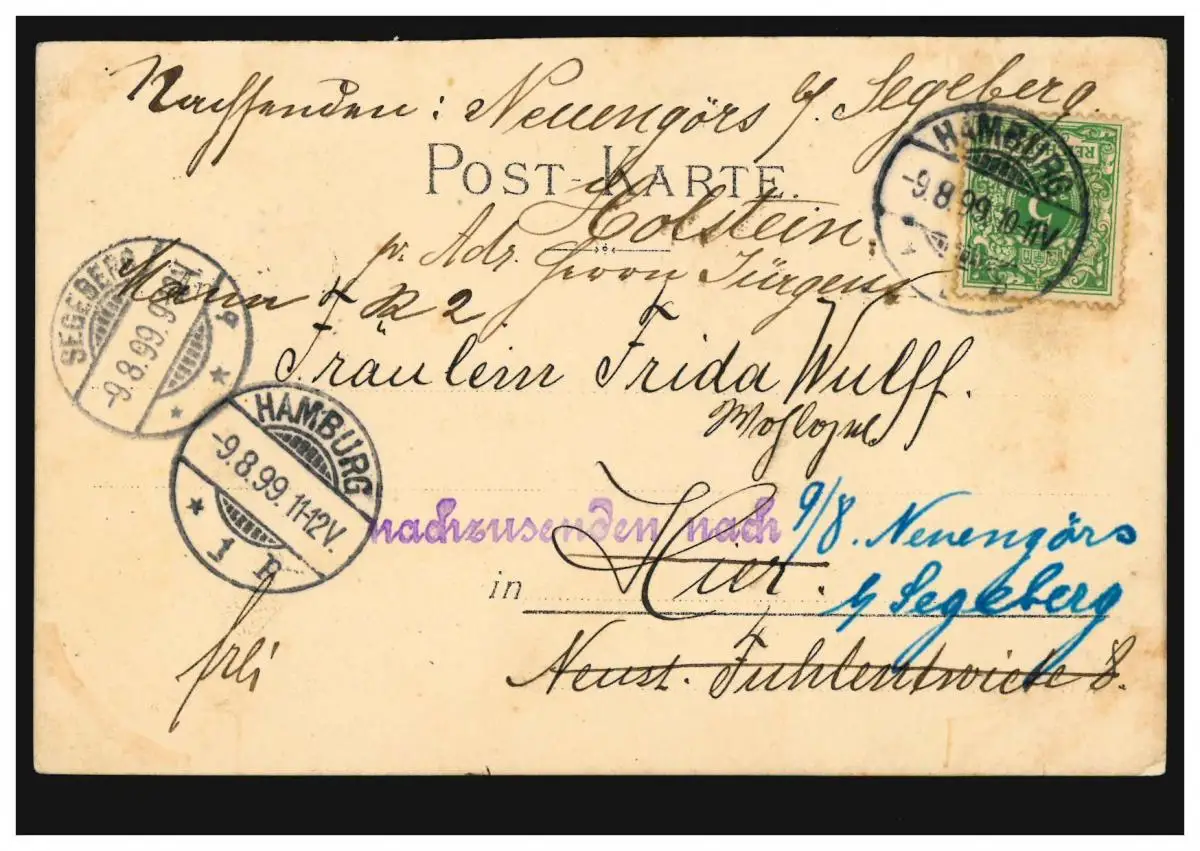 Nachsenden: Neuengörs b/ Segeberg.
POST-KARTE
Holstein
pr. Adr. Herrn Jürgens
Mann
Fräulein Frida Wulff.
Wohlgeb.
nachzusenden nach
9/8. Neuengörs
b/ Segeberg
in Hier.
Neust. Fuhlentwiete 8.
HAMBURG
-9.8.99.10-11V.
SEGEBERG
-9.8.99.
HAMBURG
-9.8.99.11-12V.
1
5